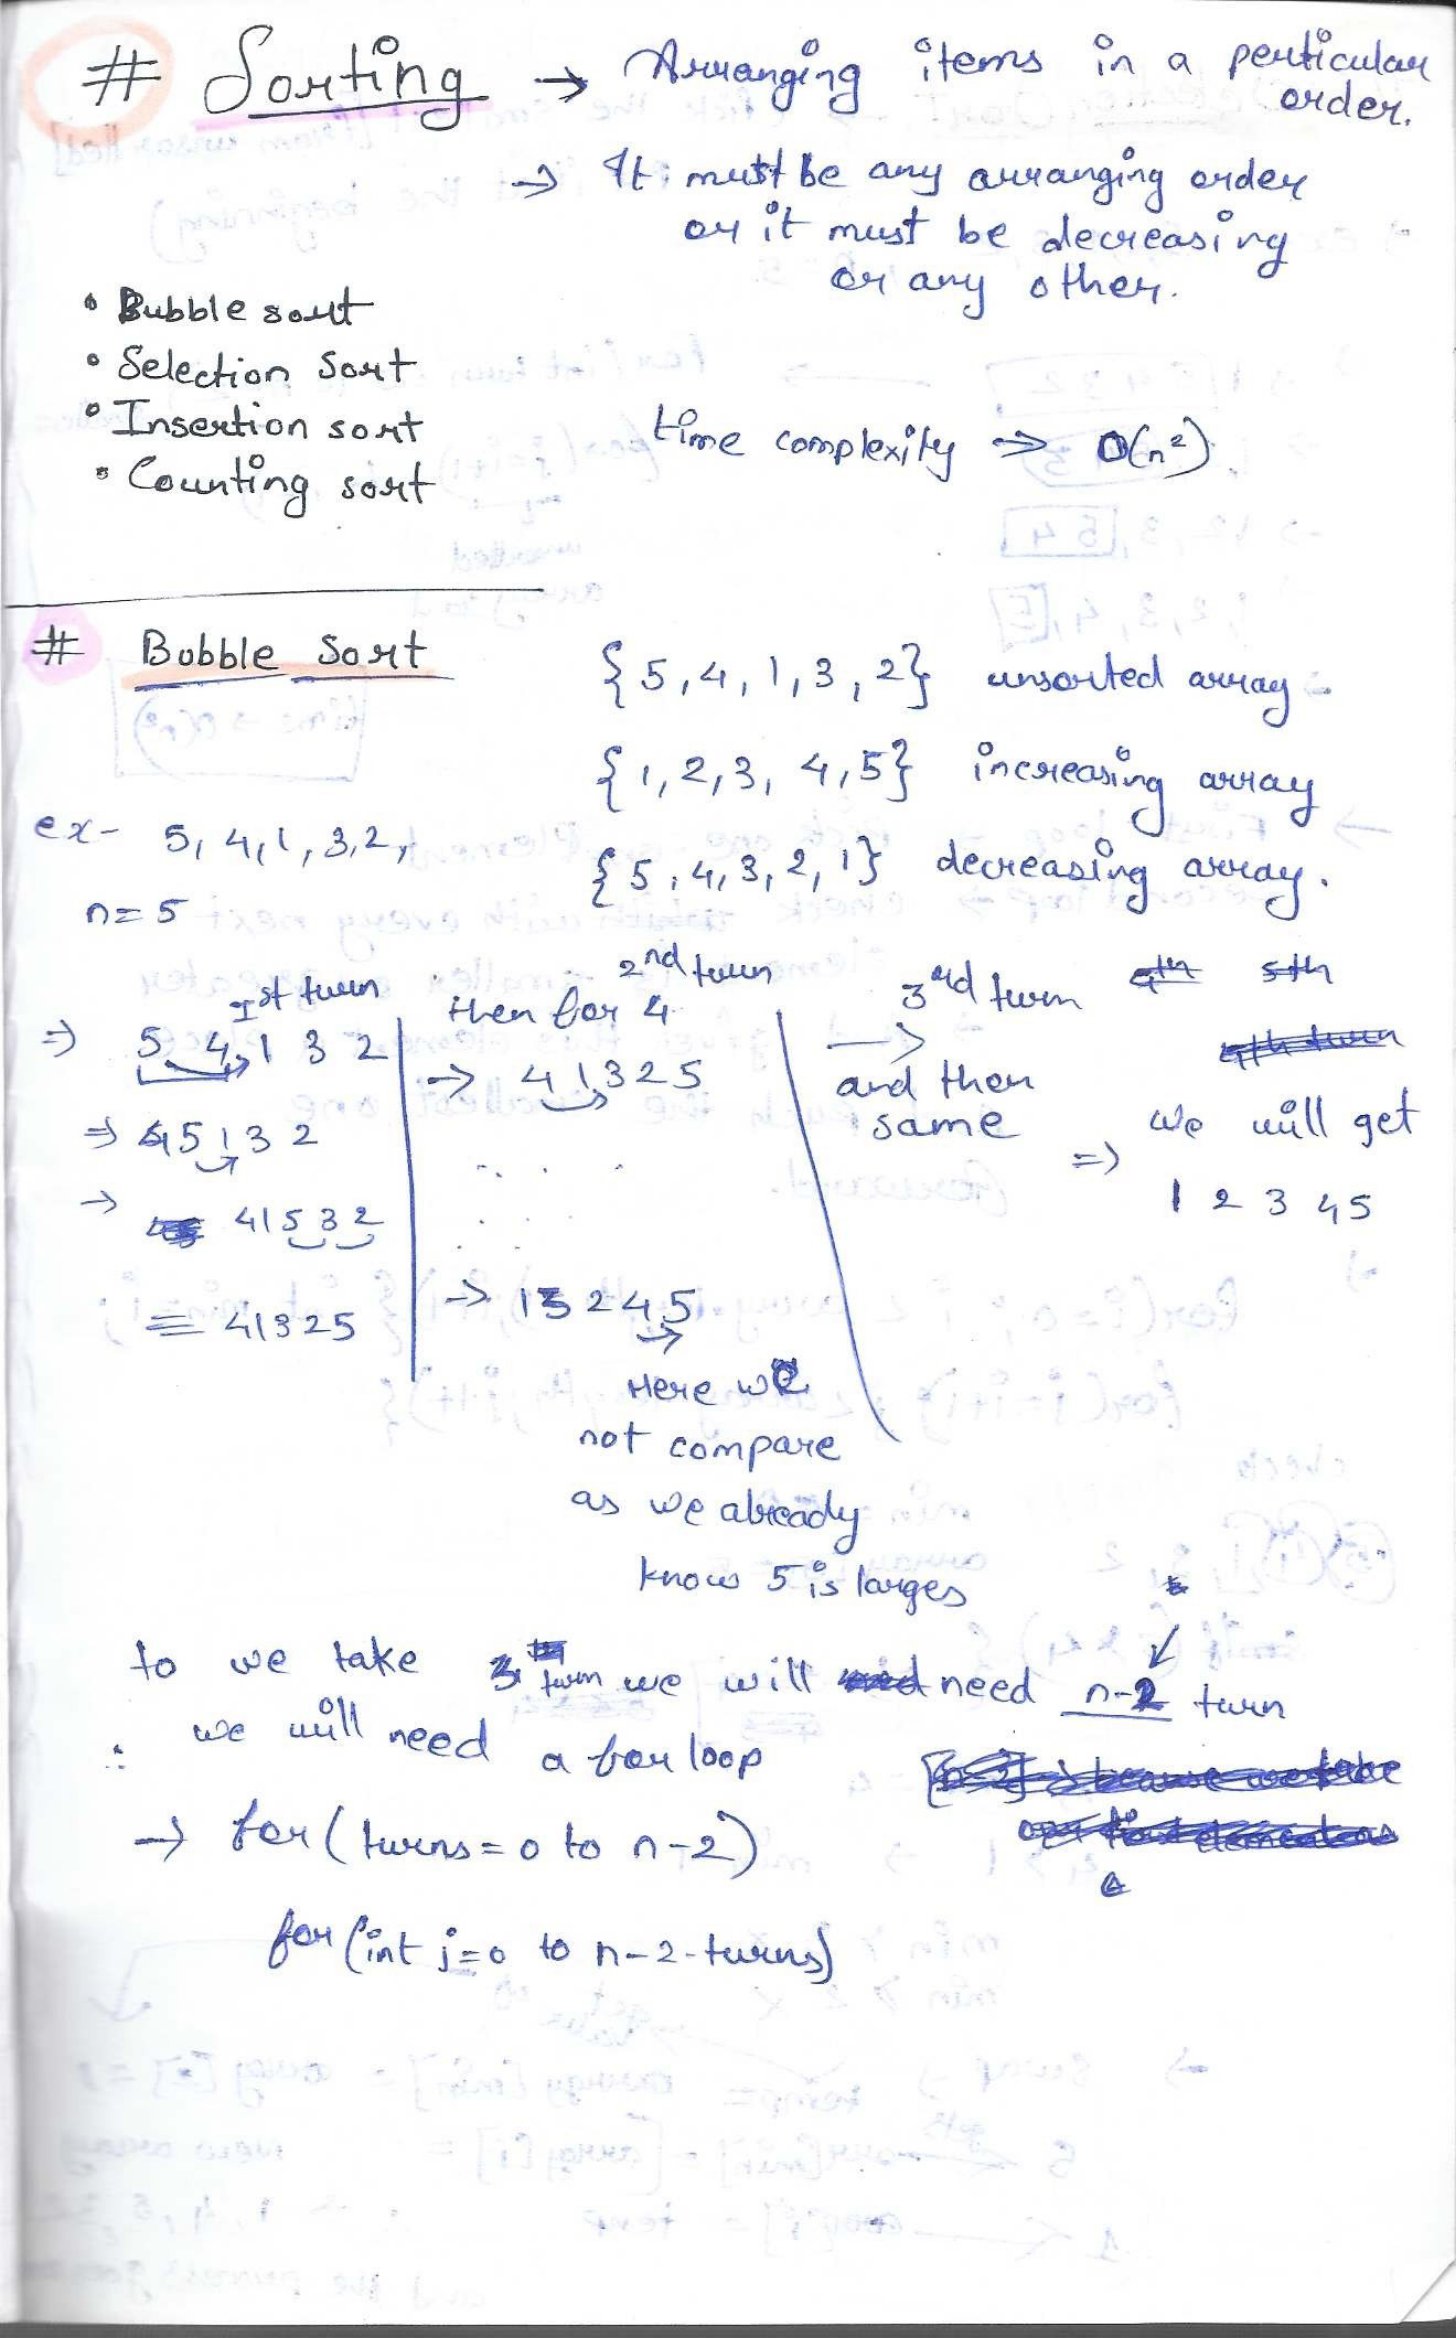 # Sorting → Arranging items in a perticular
order.
→ It must be any arranging order
or it must be decreasing
or any other.
• Bubble sort
• Selection sort
• Insertion sort
• Counting sort
time complexity ⇒ O(n²)
# Bubble Sort
{5,4,1,3,2} unsorted array
{1,2,3,4,5} increasing array
ex- 5,4,1,3,2,
{5,4,3,2,1} decreasing array.
n=5
1st turn
⇒ 5 4 1 3 2
⇒ 4 5 1 3 2
→ 4 1 5 3 2
= 4 1 3 2 5
2nd turn
then for 4
→ 4 1 3 2 5
. . .
. . .
. . .
→ 1 3 2 4 5
Here we
not compare
as we already
know 5 is larges
3rd turn
→
and then
same
4th 5th
4th turn
⇒ we will get
1 2 3 4 5
to we take 3 turn we will need n-2 turn
∴ we will need a for loop
→ for(turns=0 to n-2)
for(int j=0 to n-2-turns)